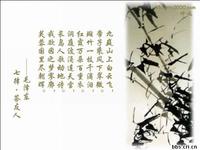 九嶷山上白云飞
帝子乘风下翠微
斑竹一枝千滴泪
红霞万朵百重衣
洞庭波涌连天雪
长岛人歌动地诗
我欲因之梦寥廓
芙蓉国里尽朝晖
——毛泽东
七律·答友人